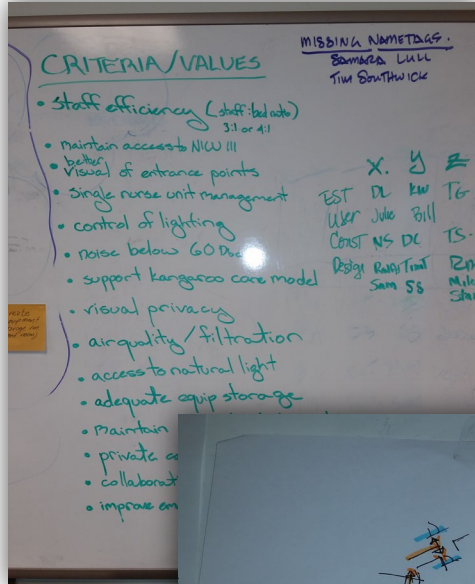 MISSING NAMETAGS.
SAMARA LULL
TIM SOUTHWICK
CRITERIA/VALUES
• staff efficiency (staff:bed ratio)
3:1 or 4:1
• maintain access to NICU !!!
better
• visual of entrance points
• single nurse unit management
• control of lighting
• noise below 60
• support kangaroo care model
• visual privacy
• air quality/filtration
• access to natural light
• adequate equip storage
• maintain
• private
• collaborat
• improve
X. Y Z
EST DL KW TG
User Julie Bill
Const NS DC TS.
Design Tim
Sam SS